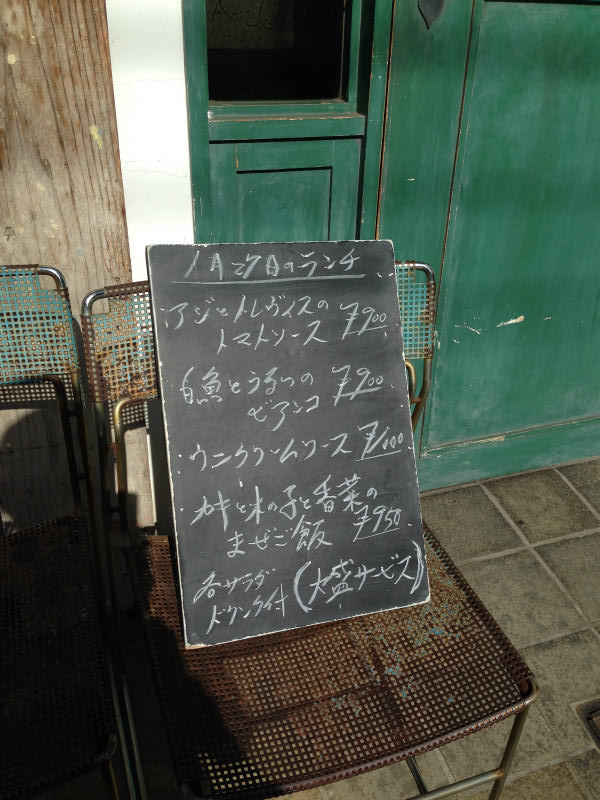 1月27日のランチ
・アジとトレヴィスの
トマトソース ¥900
・白魚とうるいの
ビアンコ ¥900
・ウニクリームソース ¥1100
・カキと木の子と香菜の
まぜご飯 ¥950
各サラダ
ドリンク付 (大盛サービス)